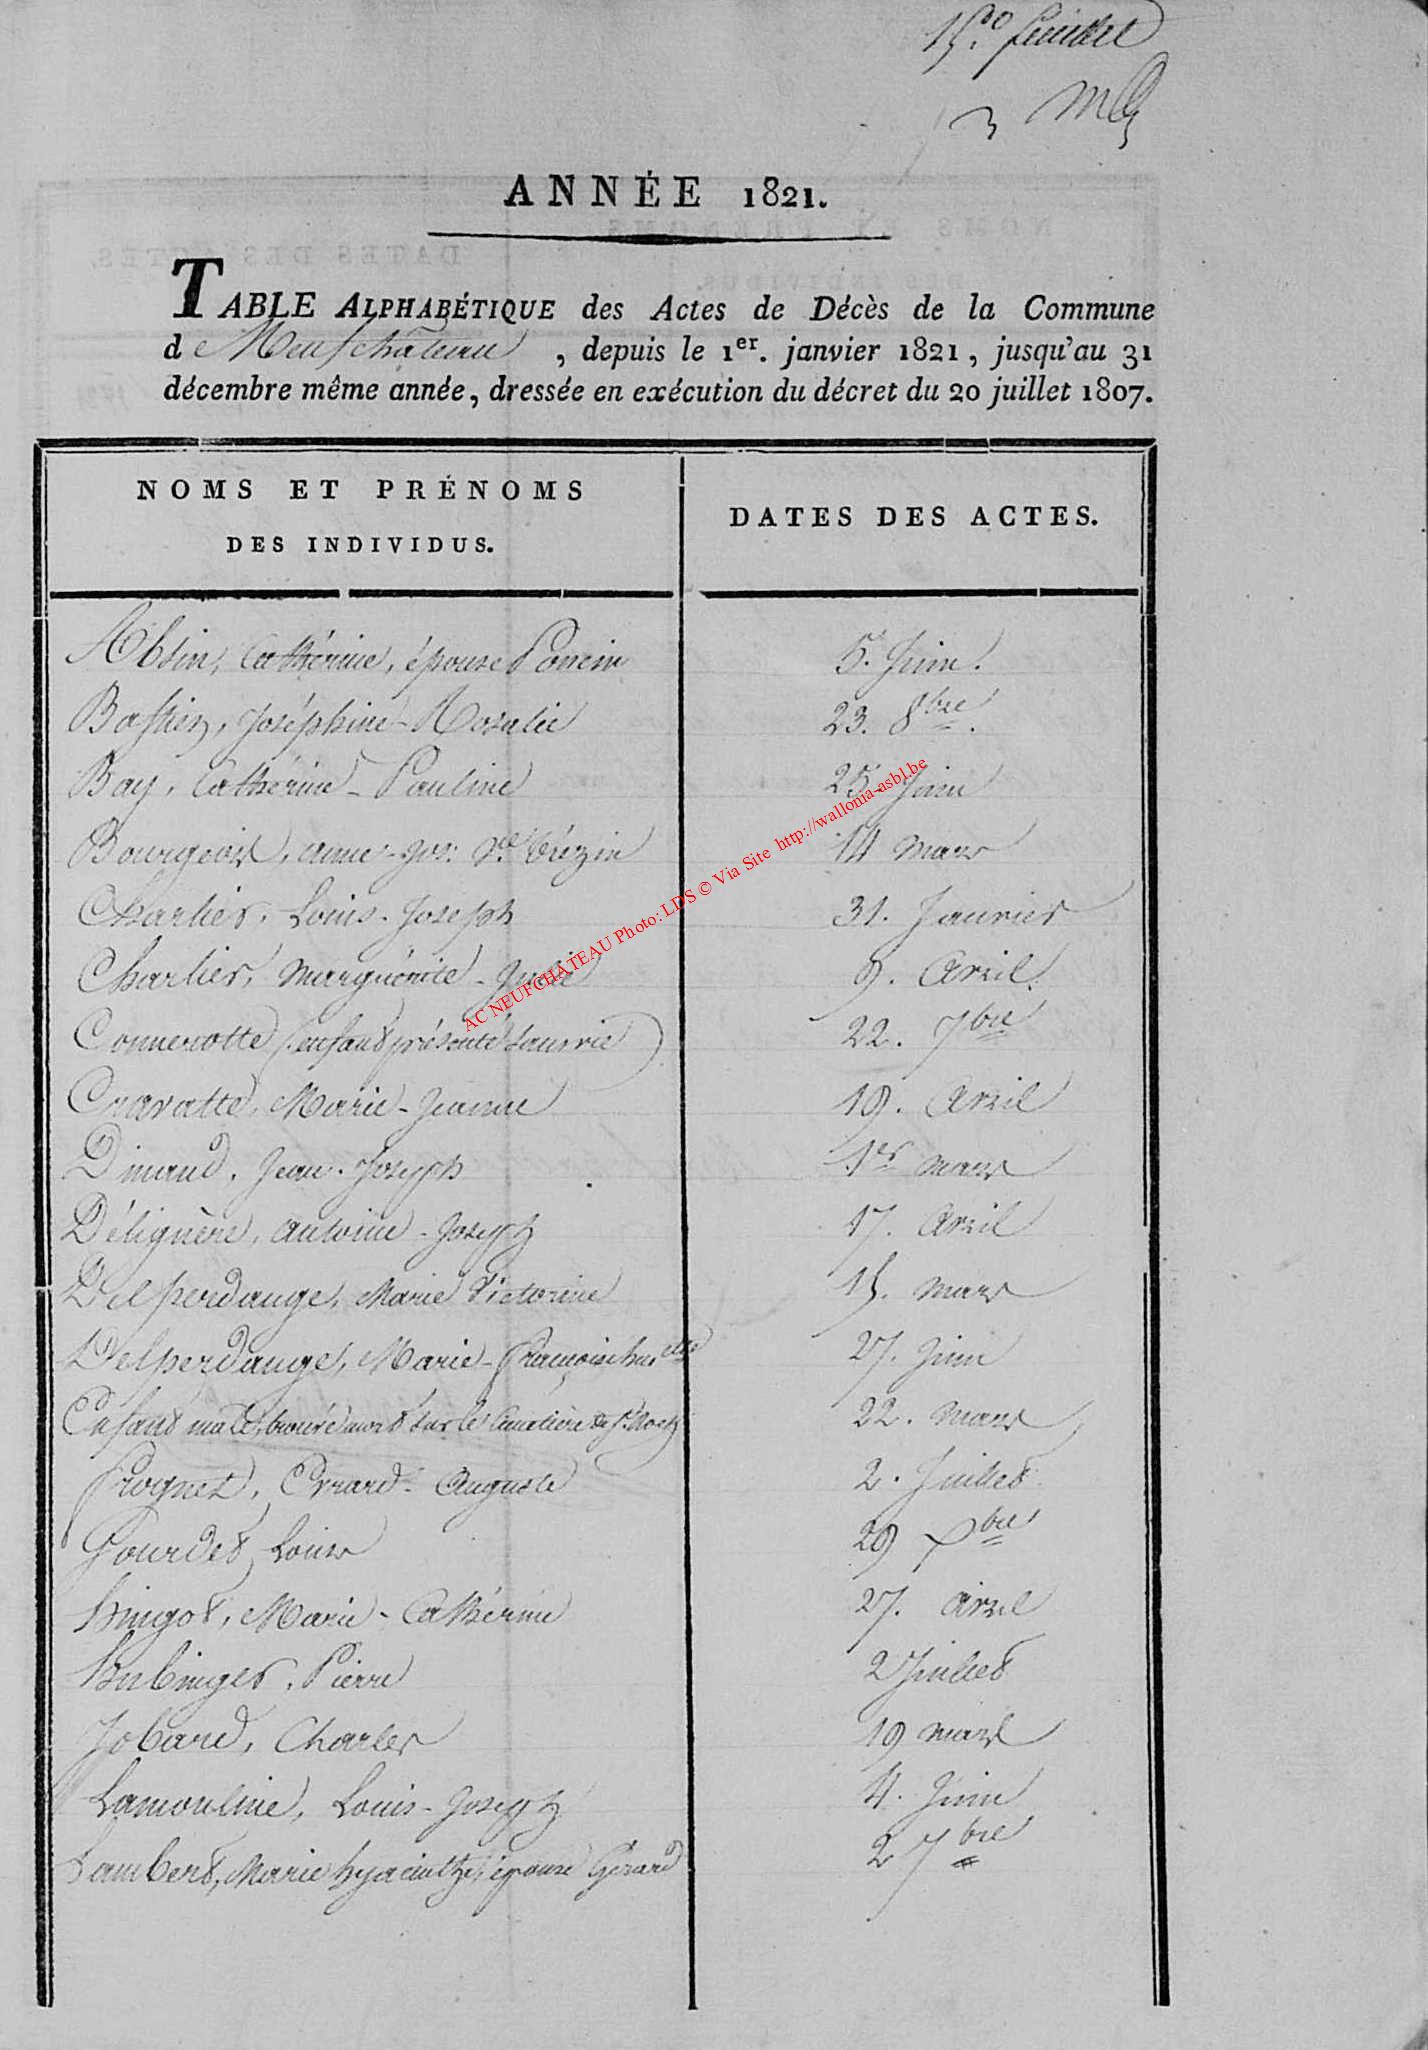 15.e feuillet
ANNÉE 1821.
TABLE ALPHABÉTIQUE des Actes de Décès de la Commune
d Neufchâteau , depuis le 1er. janvier 1821, jusqu'au 31
décembre même année, dressée en exécution du décret du 20 juillet 1807.
NOMS ET PRÉNOMS
DES INDIVIDUS.
DATES DES ACTES.
Absin, Cathérine, épouse Poncin 5. Juin.
Bastien, Joséphine-Rosalie 23. 8bre.
Bay, Cathérine-Pauline 25. Juin
Bourgeois, anne-Jos: Ve. Trézin 14 Mars
Charlier, Louis-Joseph 31. Janvier
Charlier, Marguérite-Julie 9. Avril.
Connerotte (enfant présenté sans vie) 22. 7bre
Cravatte, Marie-Jeanne 19. Avril
Dinand, Jean-Joseph 1er mars
Déliguère, Antoine-Joseph 17. Avril
Delperdange, Marie Victorine 15. mars
Delperdange, Marie-Françoise 27. Juin
Enfant mâle, trouvé mort sur le Cimetière de St. Roch 22. Mars
Frognet, Evrard-Auguste 2. Juillet
Gourdet, Louis 29 Xbre
hingot, Marie-Cathérine 27. avril
hubinger, Pierre 2 Juillet
Jobard, Charles 19 mars
Lamouline, Louis-Joseph 4. Juin
Lambert, Marie hyacinthe, épouse Gérard 2 7bre
AC NEUFCHATEAU Photo: LDS © Via Site http://wallonia-asbl.be